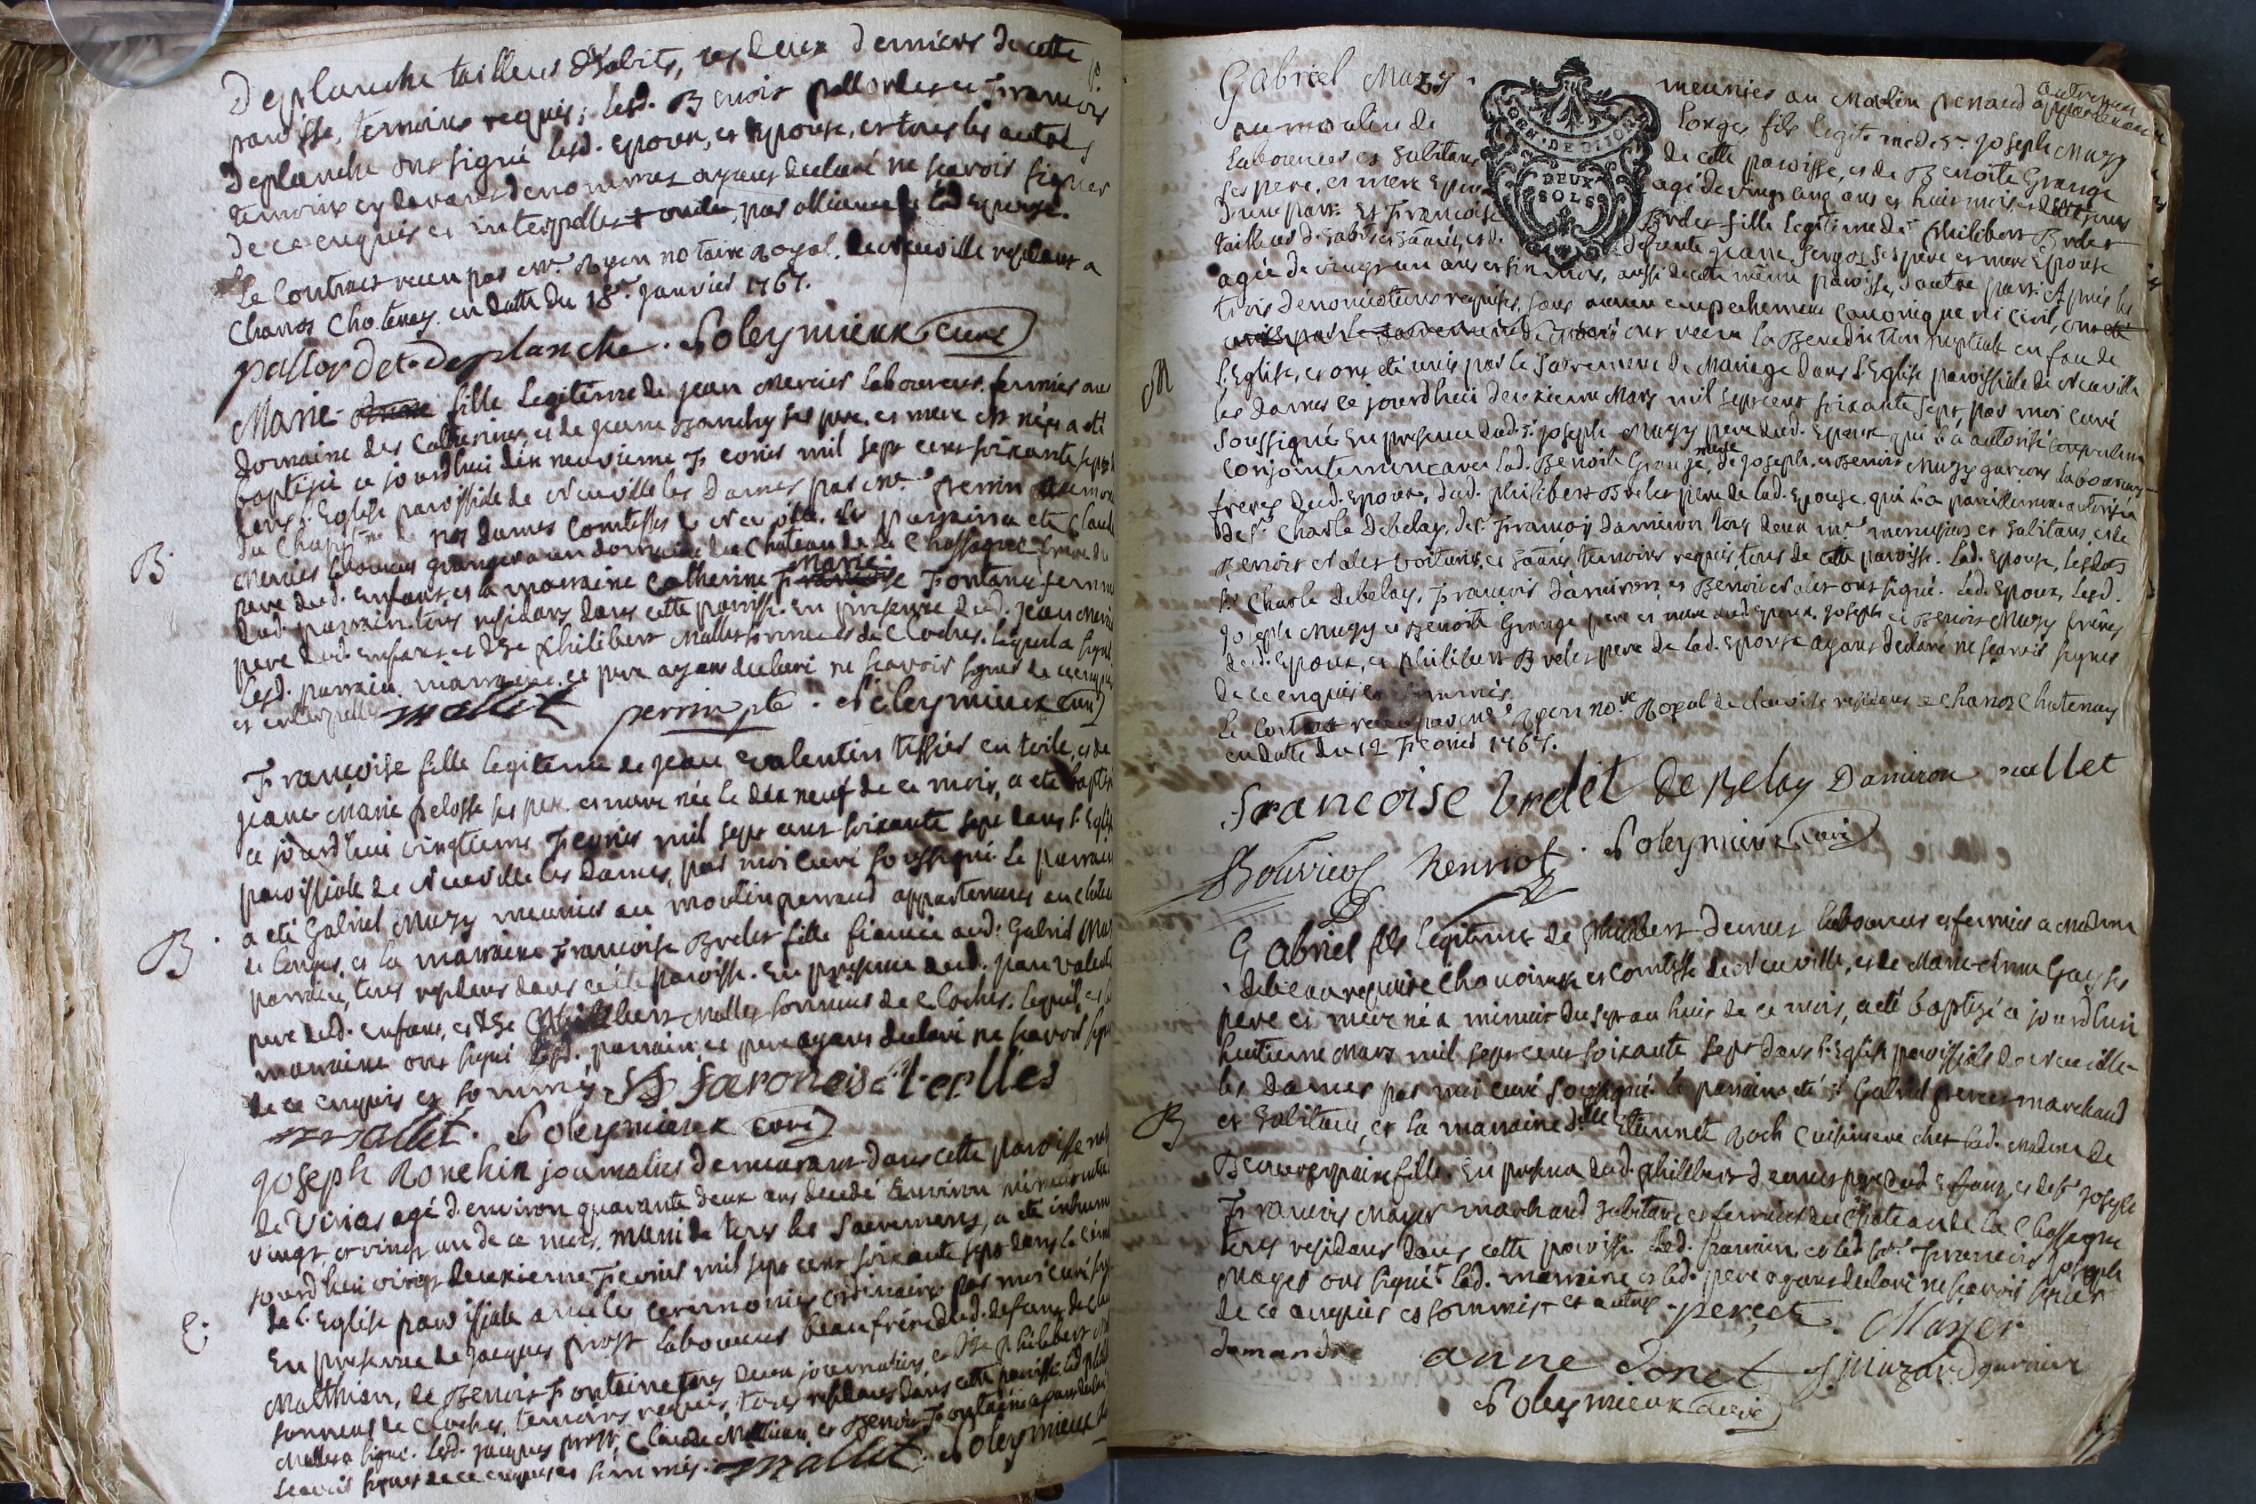 Deplanche tailleur d'habits, ces deux derniers de cette
paroisse, temoins requis; lesd. Benoit pallordet et François
Deplanche ont signé lesd. Epoux, et Epouse, et tous les autres
temoins cy devant denommes ayant declaré ne scavoir signer
de ce enquis et interpellés
Le Contract recu par me. Ryon notaire Royal de Neuville residant a
Chanoz Chatenay en datte du 18e. janvier 1767.
pallordet. Deplanche. Soleymieux curé
Marie fille legitime de jean Mercier laboureur fermier au
domaine des Catherines, et de jeanne Banchy ses pere et mere est née, a eté
baptisée ce jourdhui dix neuvieme Fevrier mil sept cent soixante sept
dans l'Eglise paroissiale de Neuville les Dames par mre. perrin
du Chappitre de nos dames Comtesses de Neuville. Le parrain a eté Claude
Mercier laboureur granger au domaine du Chateau de la Chassagne frere du
pere dud. enfant, et la marraine Catherine Marie Fontane femme
dud. parrain, tous residans dans cette paroisse. En presence dud. jean Mercier
pere dud. enfant et de Philibert Mallet sonneur de cloches, lequel a signé
lesd. parrain, marraine, et pere ayant declaré ne scavoir signer de ce enquis
et interpellés mallet perrin ptre. Soleymieux curé
B.
Françoise fille legitime de jean valentin tissier en toile, et de
jeane Marie pelosse ses pere et mere née le dix neuf de ce mois, a eté baptisée
ce jourdhui vingtieme Fevrier mil sept cent soixante sept dans l'Eglise
paroissiale de Neuville les Dames, par moi curé soussigné. Le parrain
a eté Gabriel Muzy meunier au moulin penaud appartenant au chateau
de Longes, et la marraine Françoise Brdet fille fiancée aud. Gabriel Muzy
parrain, tous residans dans cette paroisse. En presence dud. jean valentin
pere dud. enfant, et de Philibert Mallet sonneur de cloches. Lequel, et la
marraine ont signé lesd. parrain, et pere ayant declaré ne scavoir signer
de ce enquis et sommés
mallet. Soleymieux curé
B.
joseph Ronchin journalier demeurant dans cette paroisse
de Virias agé d'environ quarante deux ans decedé environ minuit
vingt et vingt un de ce mois, muni de tous les Sacremens, a eté inhumé
jourdhui vingt deuxieme Fevrier mil sept cent soixante sept dans le cimetiere
de l'Eglise paroissiale avec les ceremonies ordinaires par moi curé
En presence de jacques prost laboureur beaufrere dud. defunt de Claude
Matthian, de Benoit Fontaine tous deux journaliers et de Philibert
sonneur de cloches, temoins requis, tous residans dans cette paroisse. Led. philibert
Mallet a signé. Lesd. jacques prost, Claude Matthian, et Benoit Fontaine ayant declaré
scavoir signer de ce enquis et sommés. mallet. Soleymieux
Gabriel Muzy meunier au Moulin penaud appartenant
au moulin de Longes fils legitime de sr. joseph Muzy
laboureur et habitant de cette paroisse, et de Benoite Grange
ses pere, et mere Epoux agé de vingt cinq ans et huit mois
D'une part. Et Françoise Brdet fille legitime de Philibert Brdet
tailleur d'habits, et de defunte jeane ses pere et mere Epouse
agée de vingt un ans et six mois, aussi de cette même paroisse, d'autre part. Après les
trois denonciations requises, sans aucun empechement canonique ni civil, ont
recu la Benediction nuptiale en face de
l'Eglise, et ont eté unis par le Sacrement de Mariage dans l'Eglise paroissiale de Neuville
les Dames ce jourdhui deuxieme Mars mil sept cent soixante sept par moi curé
M
Soussigné En presence dud. sr. joseph Muzy pere dud. Epoux qui l'a autorisé
conjointement avec lad. Benoite Grange mere, de joseph et Benoit Muzy garçons laboureurs
freres dud. Epoux, dud. philibert Brdet pere de lad. Epouse, qui l'a pareillement autorisée
de sr. Charle Debelay, de sr. François Damiron tous deux mes. menuisiers et habitans, et de
Benoit Nalet temoins requis, tous de cette paroisse. Lad. Epouse, lesdits
srs. Charle Debelay, François Damiron, et Benoit Nalet ont signé. Led. Epoux, lesd.
joseph Muzy et Benoite Grange pere et mere dud. Epoux, joseph et Benoit Muzy freres
dud. Epoux, et philibert Brdet pere de lad. Epouse ayans declaré ne scavoir signer
de ce enquis et sommés.
Le Contract recu par me. Ryon nore. Royal de Neuville residant a Chanoz Chatenay
en datte du 12 Fevrier 1767.
francoise brdet De Belay Damiron nallet
Bouvier henriot. Soleymieux curé
Gabriel fils legitime de Philibert Demet laboureur et fermier a Madme
de Beaurepaire Chanoinesse et Comtesse de Neuville, et de Marie Anne Gay ses
pere et mere né a minuit du sept au huit de ce mois, a eté baptizé ce jourdhui
huitieme Mars mil sept cent soixante sept dans l'Eglise paroissiale de Neuville
les Dames par moi curé soussigné. le parrain a eté sr. Gabriel perret marchand
et habitant, et la marraine dlle. Etiennette Roch Cuisiniere chez lad. Madame de
B
Beaurepaire fille. En presence dud. philibert Demet pere dud. Enfant, et de sr. joseph
François Mayer marchand habitant et fermier du Chateau de la Chassagne
tous residans dans cette paroisse. Led. parrain, et led. sr. François joseph
Mayer ont signé lad. marraine et led. pere ayans declaré ne scavoir signer
de ce enquis et sommés et autres. peret. Mayer
anne Donet
Soleymieux curé
GEN. DE DIJON
DEUX
SOLS